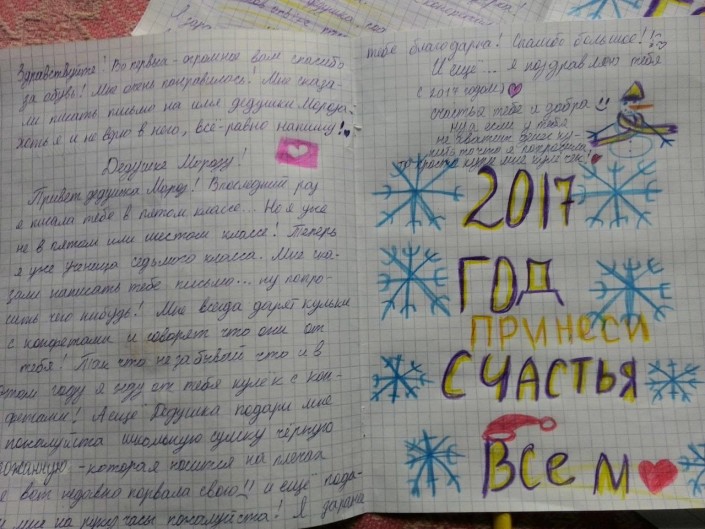 Здравствуйте! Во первых - огромное вам спасибо
за обувь! Мне очень понравилась! Мне сказа-
ли писать письмо на имя дедушки Мороза.
Хоть я и не верю в него, всё-равно напишу!
Дедушке Морозу!
Привет дедушка Мороз! В последний раз
я писала тебе в пятом классе... Но я уже
не в пятом или шестом классе! Теперь
я уже ученица седьмого класса. Мне ска-
зали написать тебе письмо... ну попро-
сить чего нибудь! Мне всегда дарят кульки
с конфетами и говорят что они от
тебя! Так что не забывай что я в
этом году я жду от тебя кулёк с кон-
фетами! А ещё Дедушка подари мне
пожалуйста школьную сумку чёрную
кожанную - которая носится на плечах
я вот недавно порвала свою!! и ещё пода-
ри мне на руку часы пожалуйста! Я
тебе благодарна! Спасибо большое!!
И ещё... я поздравляю тебя
с 2017 годом)
счастья тебе и добра
ну а если у тебя
не хватит денег ку-
пить то что я попросила,
то просто купи мне
2017
ГОД
ПРИНЕСИ
СЧАСТЬЯ
ВСЕМ